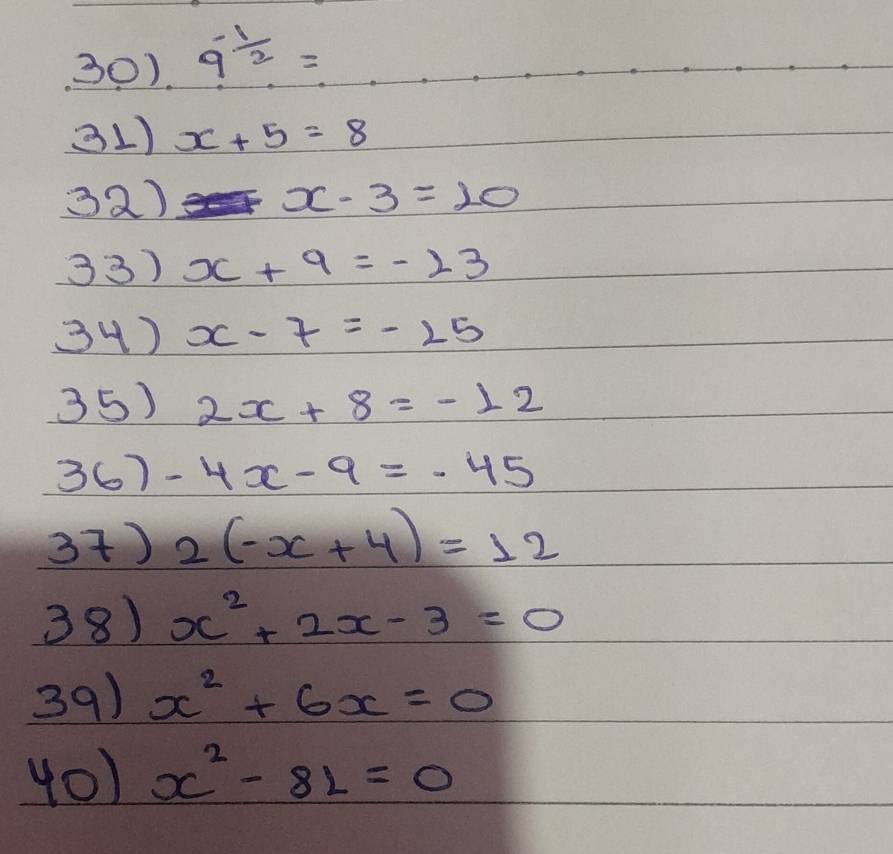 30) 9^{-1/2} =
31) x + 5 = 8
32) x - 3 = 10
33) x + 9 = -13
34) x - 7 = -15
35) 2x + 8 = -12
36) -4x - 9 = -45
37) 2(-x + 4) = 12
38) x² + 2x - 3 = 0
39) x² + 6x = 0
40) x² - 81 = 0